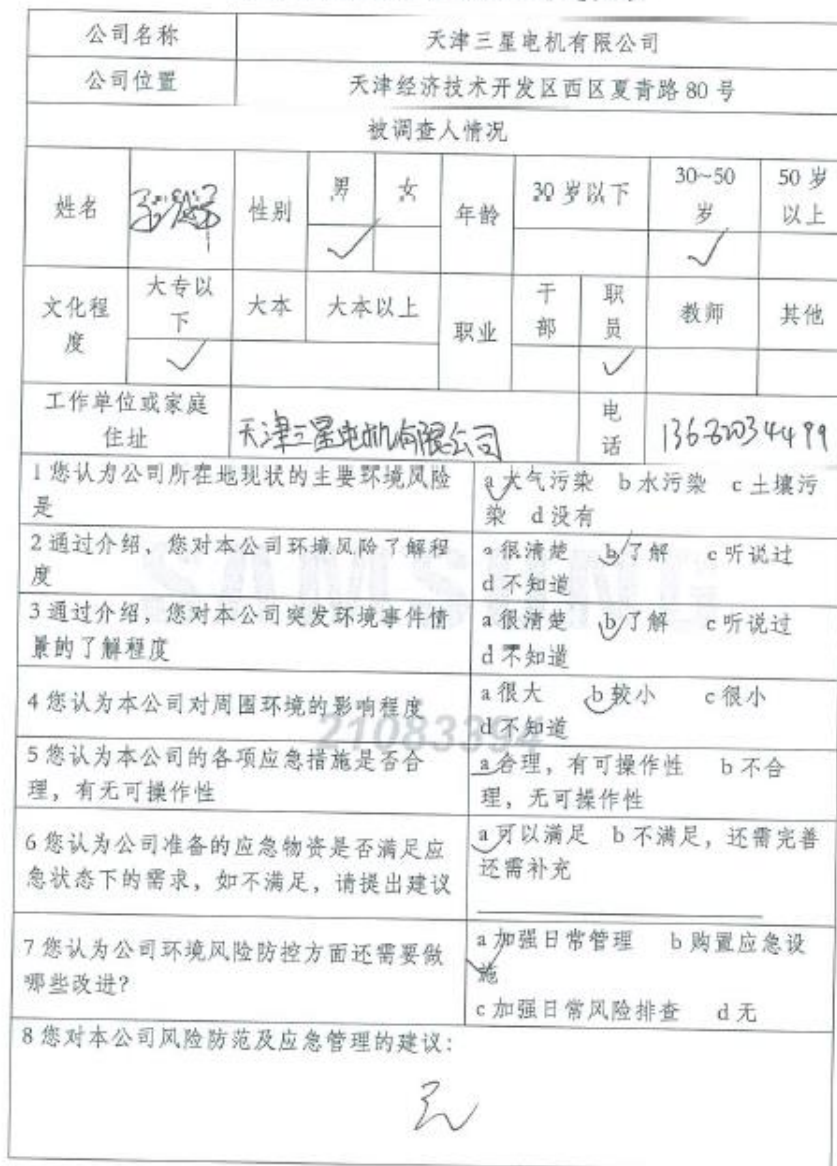 公司名称 天津三星电机有限公司
公司位置 天津经济技术开发区西区夏青路 80 号
被调查人情况
姓名 性别 男 女 年龄 30 岁以下 30~50 岁 50 岁以上
✓ ✓
文化程度 大专以下 大本 大本以上 职业 干部 职员 教师 其他
✓ ✓
工作单位或家庭住址 天津三星电机有限公司 电话
1 您认为公司所在地现状的主要环境风险
是
a 大气污染 b 水污染 c 土壤污
染 d 没有
2 通过介绍，您对本公司环境风险了解程
度
a 很清楚 b 了解 c 听说过
d 不知道
3 通过介绍，您对本公司突发环境事件情
景的了解程度
a 很清楚 b 了解 c 听说过
d 不知道
4 您认为本公司对周围环境的影响程度
a 很大 b 较小 c 很小
d 不知道
21083394
5 您认为本公司的各项应急措施是否合
理，有无可操作性
a 合理，有可操作性 b 不合
理，无可操作性
6 您认为公司准备的应急物资是否满足应
急状态下的需求，如不满足，请提出建议
a 可以满足 b 不满足，还需完善
还需补充
7 您认为公司环境风险防控方面还需要做
哪些改进?
a 加强日常管理 b 购置应急设
施
c 加强日常风险排查 d 无
8 您对本公司风险防范及应急管理的建议:
无